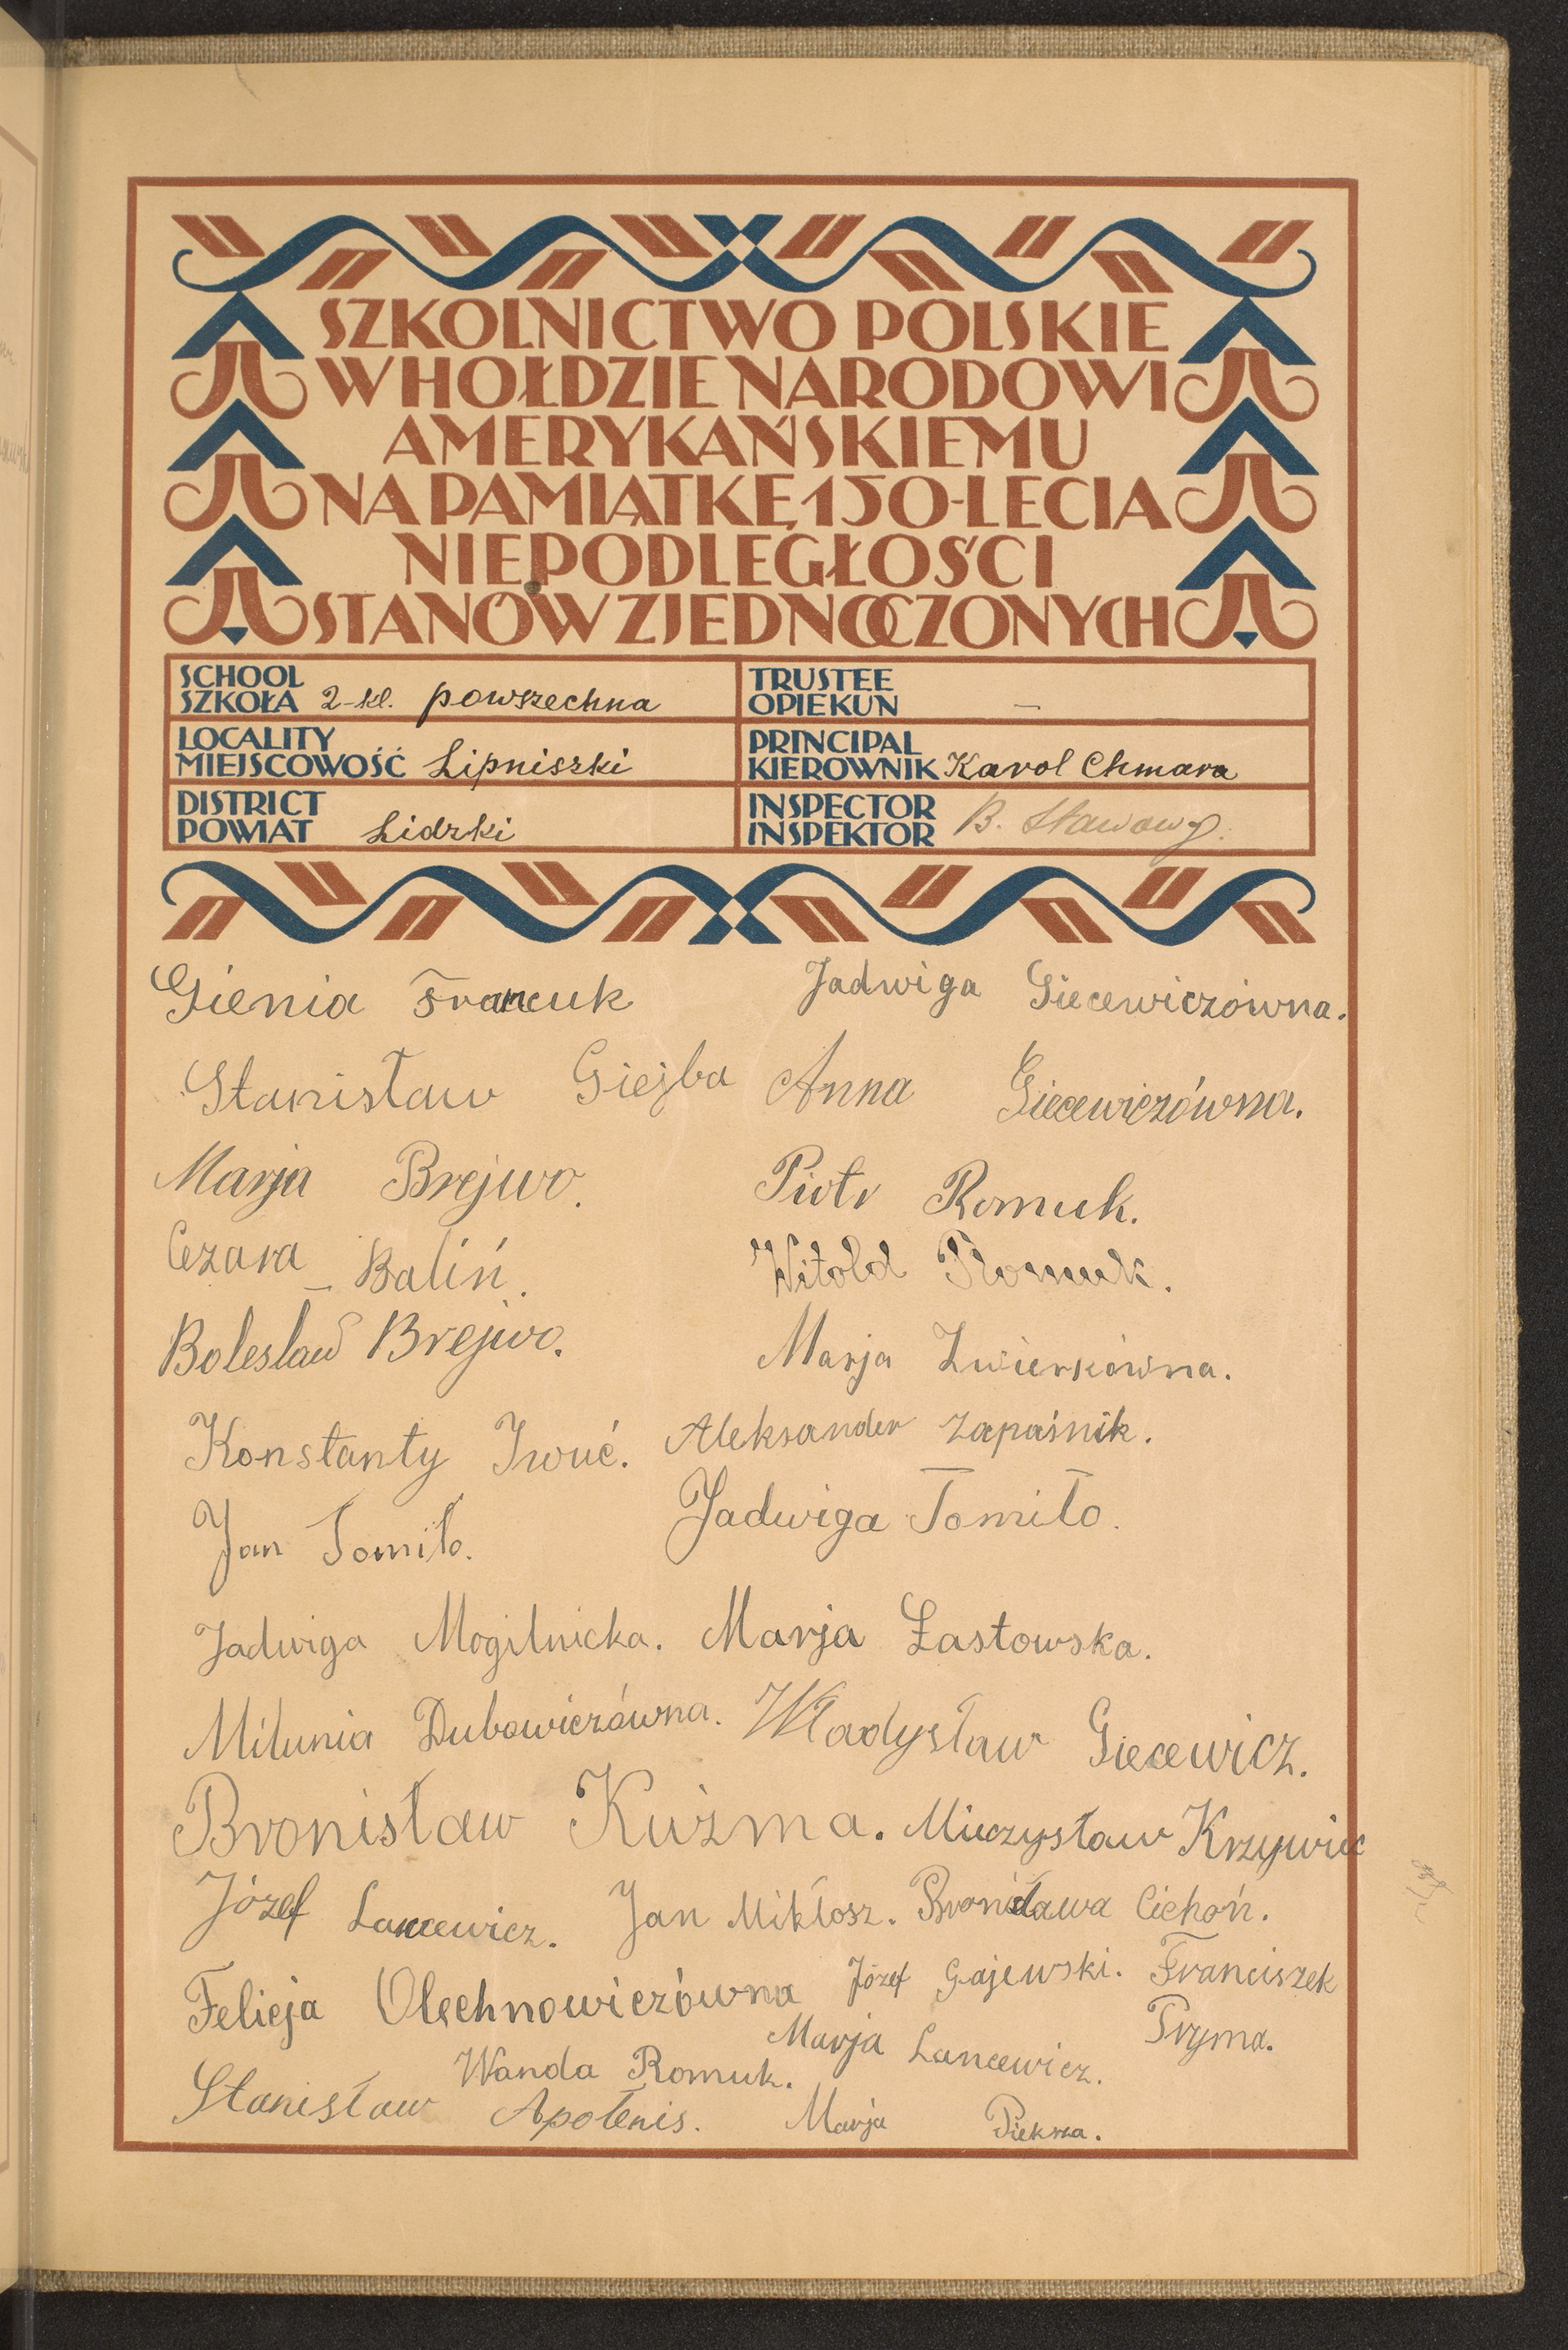 SZKOLNICTWO POLSKIE
W HOŁDZIE NARODOWI
AMERYKAŃSKIEMU
NA PAMIĄTKĘ 150-LECIA
NIEPODLEGŁOŚCI
STANÓW ZJEDNOCZONYCH
SCHOOL
SZKOŁA 2-kl. powszechna
TRUSTEE
OPIEKUN —
LOCALITY
MIEJSCOWOŚĆ Lipniszki
PRINCIPAL
KIEROWNIK Karol Chmara
DISTRICT
POWIAT Lidzki
INSPECTOR
INSPEKTOR B. Sławowy.
Gienia Francuk Jadwiga Giecewiczówna.
Stanisław Giejba Anna Giecewiczówna.
Marja Brejwo. Piotr Romuk.
Cezara Baliń. Witold Romuk.
Bolesław Brejwo. Marja Zwierkówna.
Konstanty Iwuć. Aleksander Zapaśnik.
Jan Tomiło. Jadwiga Tomiło.
Jadwiga Mogilnicka. Marja Łastowska.
Milunia Dubowiczówna. Władysław Giecewicz.
Bronisław Kuźma. Mieczysław Krzywiec
Józef Lancewicz. Jan Mikłosz. Bronisława Cichoń.
Felicja Olechnowiczówna Józef Gajewski. Franciszek
Pryma.
Wanda Romuk. Marja Lancewicz.
Stanisław Apołenis. Marja